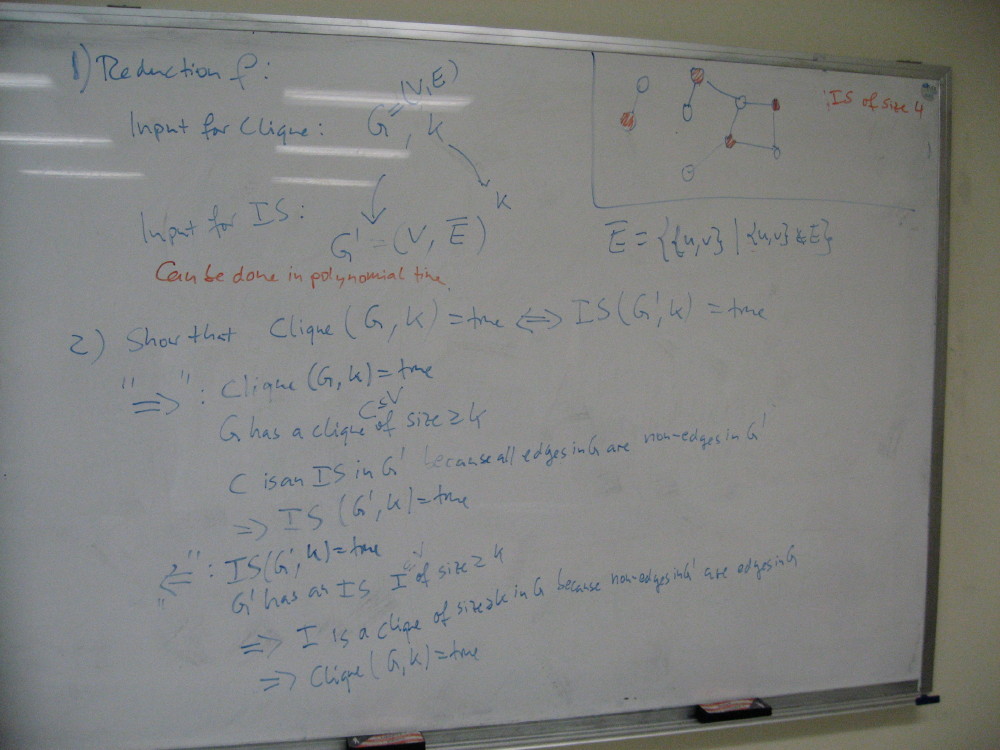 1) Reduction f:
Input for Clique: G=(V,E), k
k
Input for IS: G' = (V, E̅)
Can be done in polynomial time.
IS of size 4
E̅ = {{u,v} | {u,v} ∉ E}
2) Show that Clique (G, k) = true ⇔ IS(G', k) = true
"⇒": Clique (G, k) = true
G has a clique C⊆V of size ≥ k
C is an IS in G' because all edges in G are non-edges in G'
⇒ IS (G', k) = true
"⇐": IS(G', k) = true
G' has an IS I of size ≥ k
⇒ I is a clique of size ≥ k in G because non-edges in G' are edges in G
⇒ Clique (G, k) = true